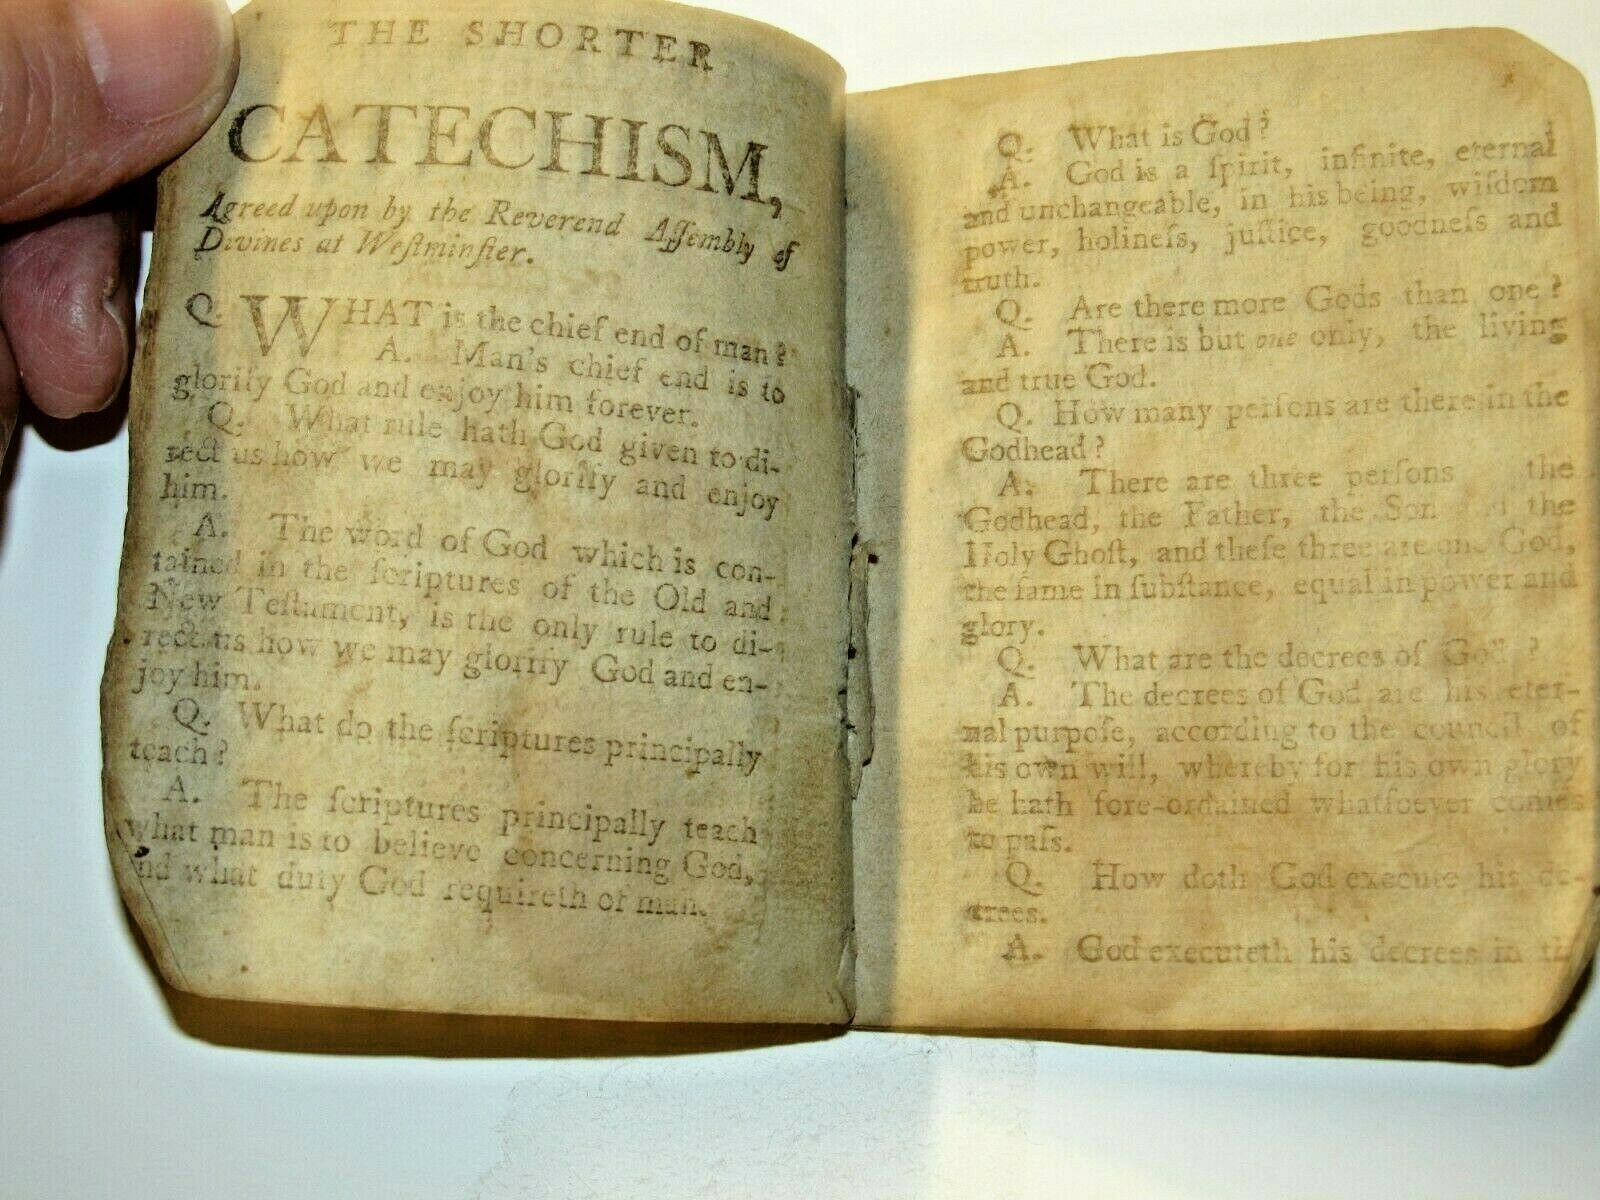 THE SHORTER
CATECHISM,
Agreed upon by the Reverend Aſſembly of
Divines at Weſtminſter.
Q. WHAT is the chief end of man?
A. Man's chief end is to
glorify God and enjoy him forever.
Q. What rule hath God given to di-
rect us how we may glorify and enjoy
him.
A. The word of God which is con-
tained in the ſcriptures of the Old and
New Teſtament, is the only rule to di-
rect us how we may glorify God and en-
joy him.
Q. What do the ſcriptures principally
teach?
A. The ſcriptures principally teach
what man is to believe concerning God,
and what duty God requireth of man.
Q. What is God?
A. God is a ſpirit, infinite, eternal
and unchangeable, in his being, wiſdom
power, holineſs, juſtice, goodneſs and
truth.
Q. Are there more Gods than one?
A. There is but one only, the living
and true God.
Q. How many perſons are there in the
Godhead?
A. There are three perſons the
Godhead, the Father, the Son the
Holy Ghoſt, and theſe three are one God,
the ſame in ſubſtance, equal in power and
glory.
Q. What are the decrees of God?
A. The decrees of God are his eter-
nal purpoſe, according to the council of
his own will, whereby for his own glory
he hath fore-ordained whatſoever comes
to paſs.
Q. How doth God execute his de-
crees.
A. God executeth his decrees in